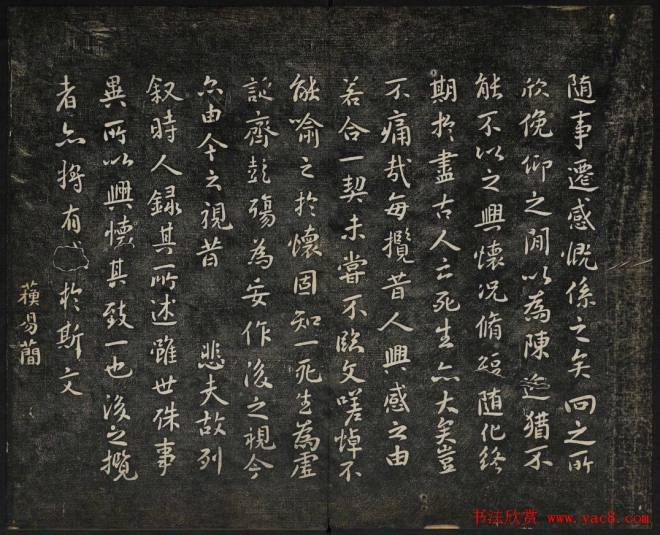 随事遷感慨係之矣向之所
欣俛仰之閒以為陳迹猶不
能不以之興懷况脩短随化終
期於盡古人云死生亦大矣豈
不痛哉每攬昔人興感之由
若合一契未嘗不臨文嗟悼不
能喻之於懷固知一死生為虚
誕齊彭殤為妄作後之視今
亦由今之視昔 悲夫故列
叙時人録其所述雖世殊事
異所以興懷其致一也後之攬
者亦將有於斯文
蘇易簡
书法欣赏 www.yac8.com